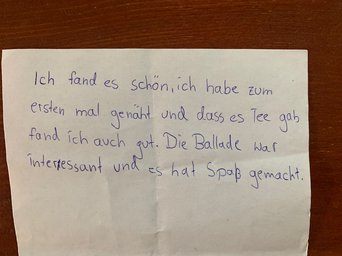 Ich fand es schön, ich habe zum
ersten mal genäht und dass es Tee gab
fand ich auch gut. Die Ballade war
interessant und es hat Spaß gemacht.